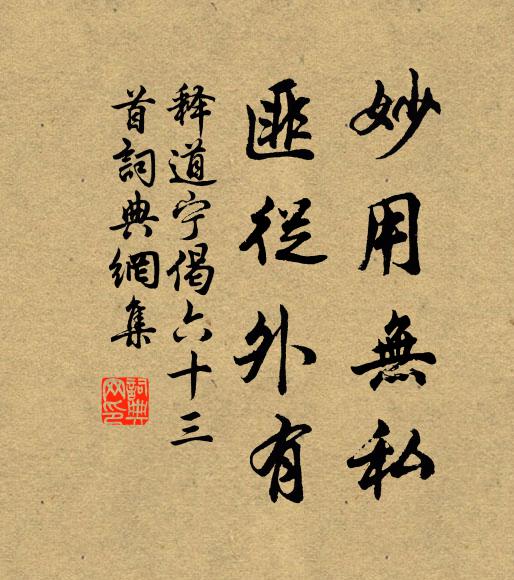 妙用無私
匪從外有
释道宁偈六十三
首詞典網集
詞典
网印